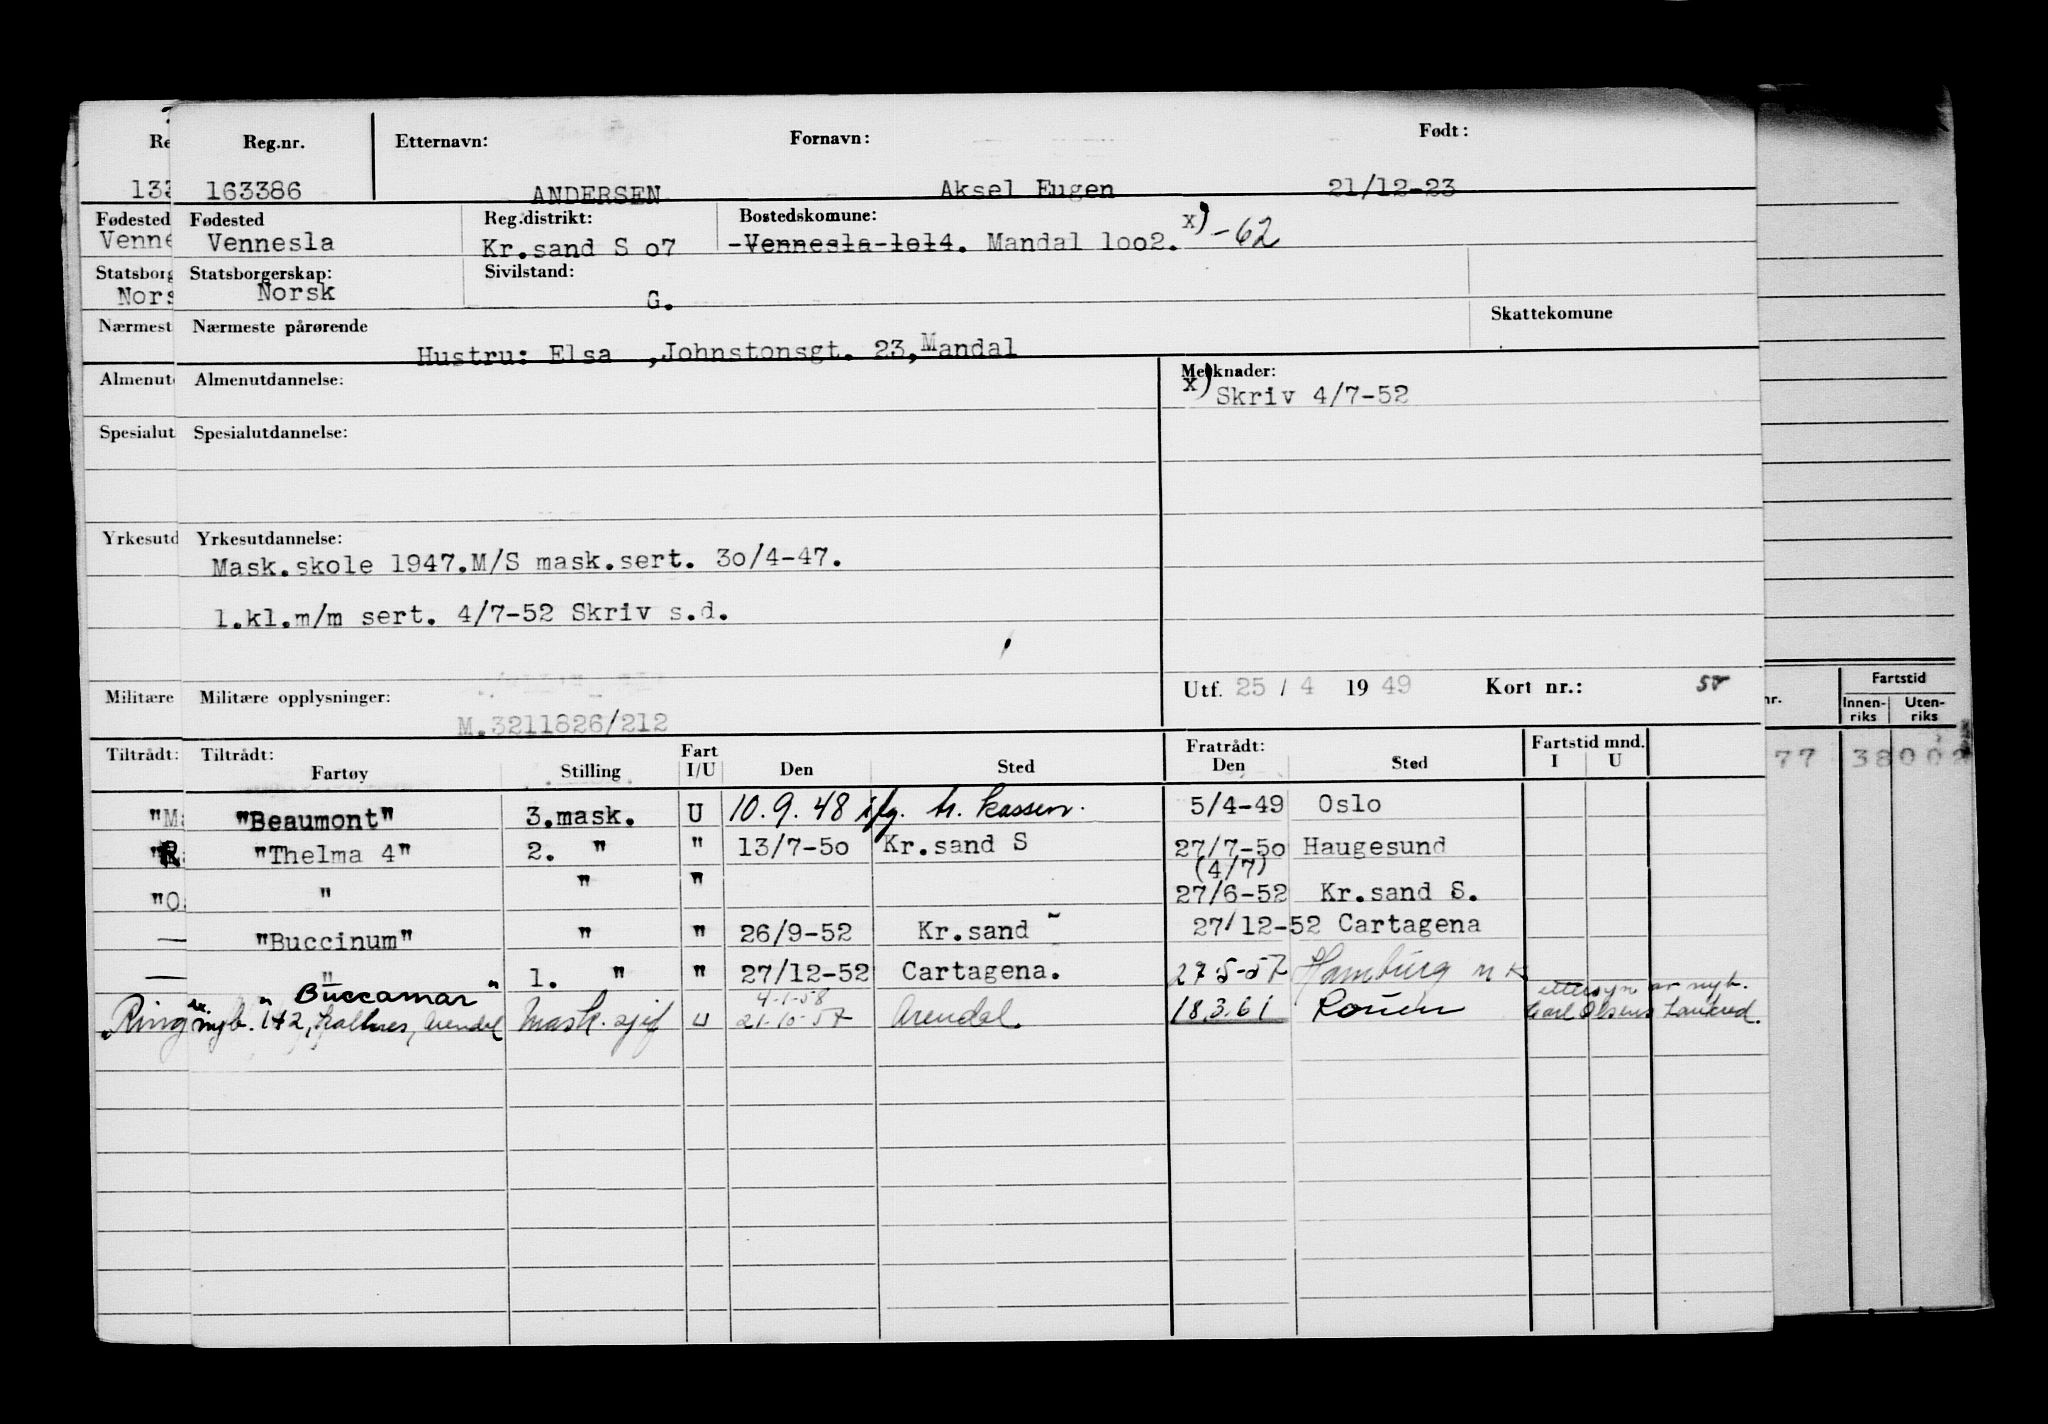 Reg.nr. Etternavn: Fornavn: Født:
133 163386 ANDERSEN Aksel Eugen 21/12-23
Fødested Fødested Reg.distrikt: Bostedskomune:
Venne Vennesla Kr.sand S o7 -Vennesla-1o14. Mandal 1oo2. x) -62
Statsborg Statsborgerskap: Sivilstand:
Nors Norsk G.
Nærmest Nærmeste pårørende Skattekomune
Hustru: Elsa ,Johnstonsgt. 23,Mandal
Almenut Almenutdannelse: Merknader:
x) Skriv 4/7-52
Spesialut Spesialutdannelse:
Yrkesutd Yrkesutdannelse:
Mask.skole 1947.M/S mask.sert. 3o/4-47.
1.kl.m/m sert. 4/7-52 Skriv s.d.
Militære Militære opplysninger: Utf. 25 / 4 19 49 Kort nr.: 50
M.3211826/212
Tiltrådt: Tiltrådt: Fart Fratrådt: Fartstid mnd.
Fartøy Stilling I/U Den Sted Den Sted I U
nr. Fartstid
Innen- Uten-
riks riks
77 38002
"Ma "Beaumont" 3.mask. U 10.9.48 ifg. tr. kassen. 5/4-49 Oslo
"R "Thelma 4" 2. " " 13/7-5o Kr.sand S 27/7-5o Haugesund
(4/7)
"O " " " 27/6-52 Kr.sand S.
— "Buccinum" " " 26/9-52 Kr.sand 27/12-52 Cartagena
— " 1. " " 27/12-52 Cartagena. 27-5-57 Hamburg
"Buccamar" 4-1-58 ettersyn av nyb.
"Ring nyb. 142, Kalnes, Arendal Mask. sjef U 21-10-57 Arendal. 18.3.61 Rouen Carl Olsens